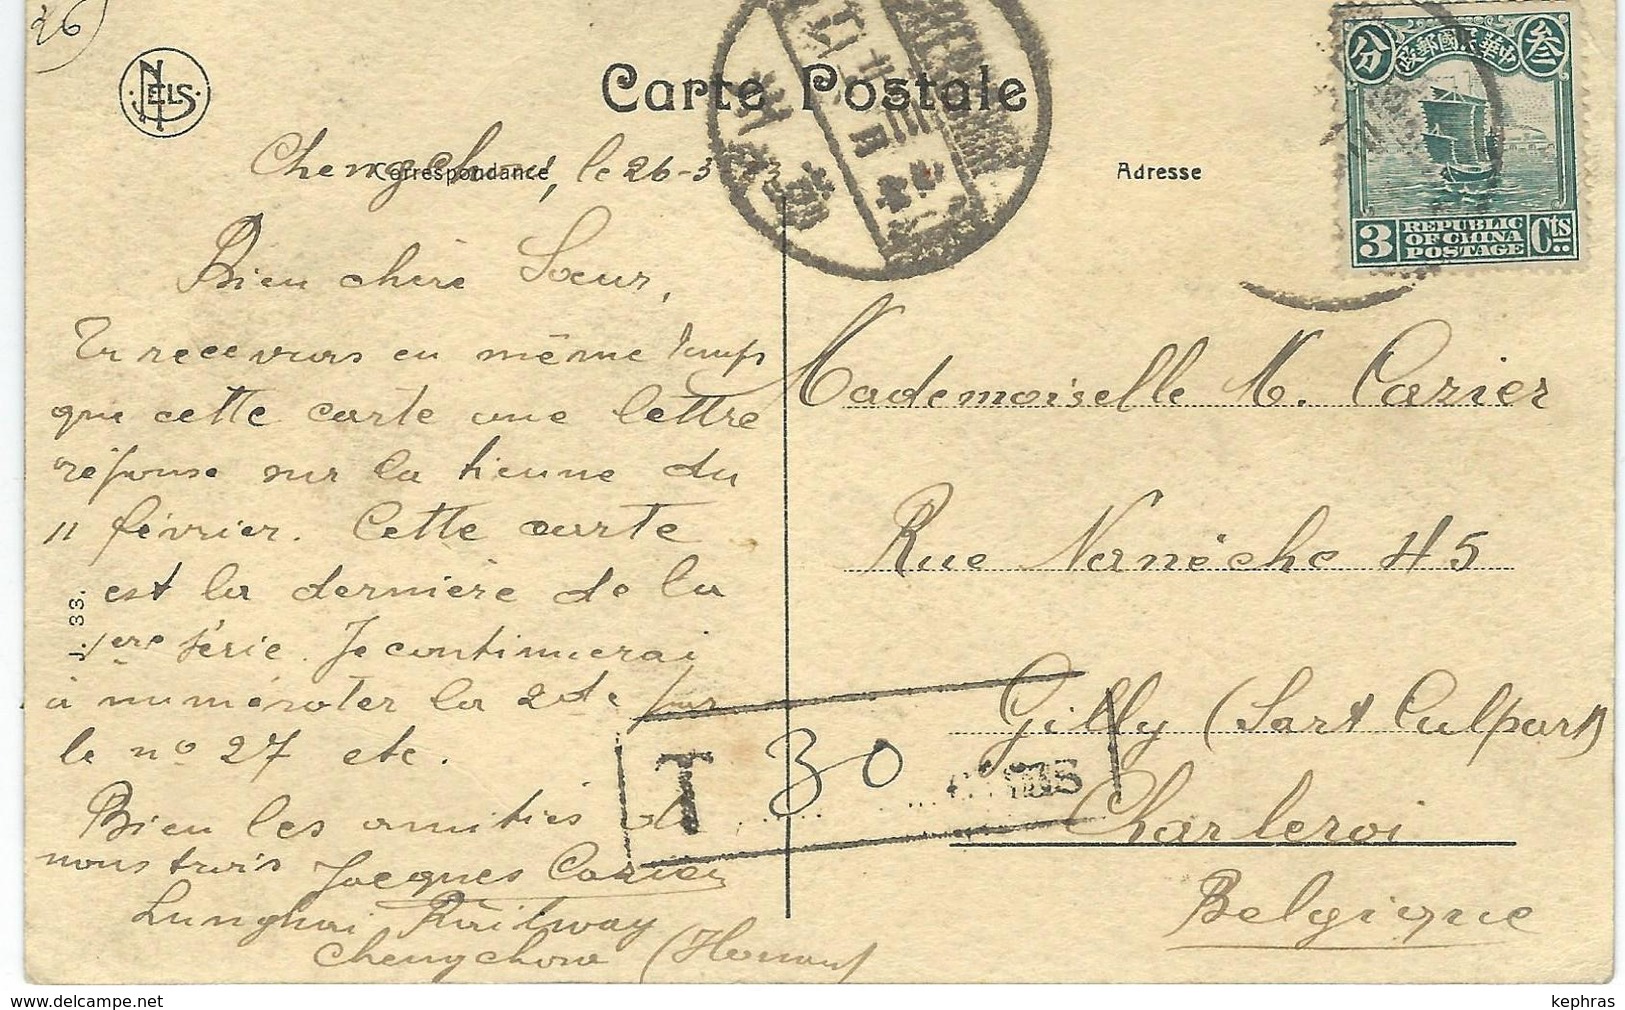 26
NELS
Carte Postale
Correspondance
Adresse
中華民國郵政
叁
分
3 REPUBLIC OF CHINA POSTAGE Cts
Chengchow, le 26-3
Bien chère Soeur,
Tu recevras en même temps
que cette carte une lettre
réponse sur la tienne du
11 février. Cette carte
est la dernière de la
1ère série. Je continuerai
à numéroter la 2de par
le no 27 etc.
Bien les amitiés de
nous trois Jacques Cazier
Lunghai Railway
Chengchow (Honan)
J. 33.
T 30 CENTIMES
Mademoiselle M. Cazier
Rue Nanèche 45
Gilly (Sart Culpart)
Charleroi
Belgique
kephras